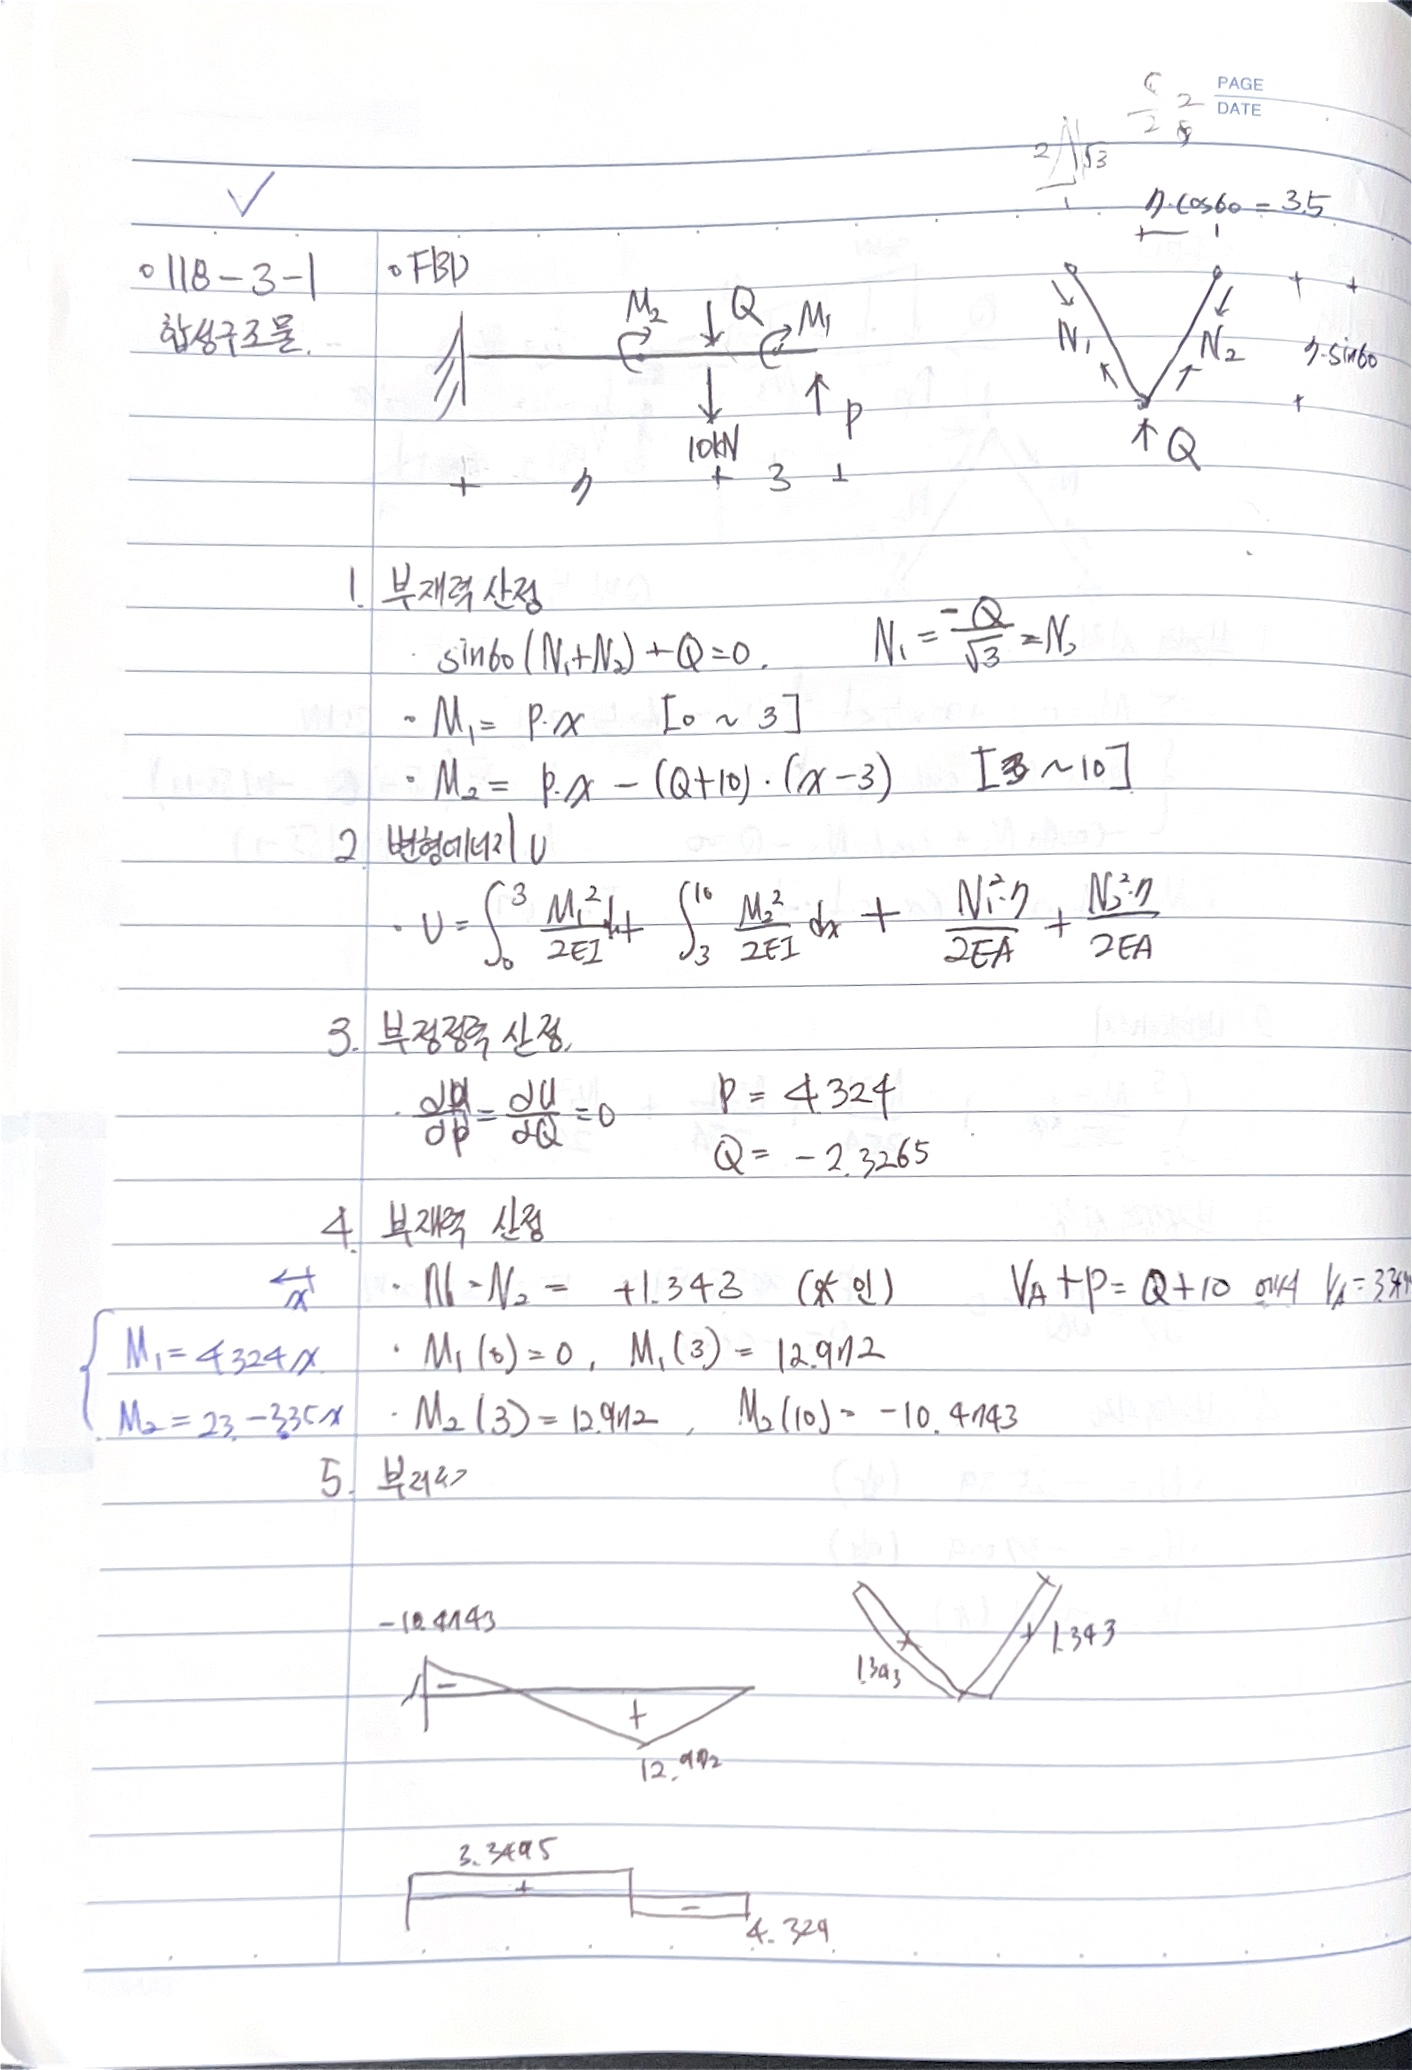 PAGE
DATE
2 √3
1
7·cos60 = 3.5
✓
∘118-3-1 ∘FBD
합성구조물.
M₂ Q M₁
N₁ N₂ 7·sin60
10kN P
Q
7 3
1. 부재력 산정
· sin60(N₁+N₂)+Q=0. N₁ = -Q/√3 = N₂
· M₁= P·x [0 ~ 3]
· M₂ = P·x - (Q+10)·(x-3) [3 ~10]
2. 변형에너지 U
· U = ∫₀³ M₁²/2EI dx+ ∫₃¹⁰ M₂²/2EI dx + N₁²·7/2EA + N₂²·7/2EA
3. 부정정력 산정.
· dU/dP = dU/dQ =0 P = 4.324
Q = -2.3265
4. 부재력 산정
x · N₁=N₂ = +1.343 (인) VA+P = Q+10 에서
M₁=4.324x · M₁(0)=0, M₁(3)= 12.972
M₂=23.-3.35x · M₂(3)=12.972, M₂(10)= -10.4743
5.
-10.4743
- +
12.972
1.343 1.343
3.3495
+ -
4.324